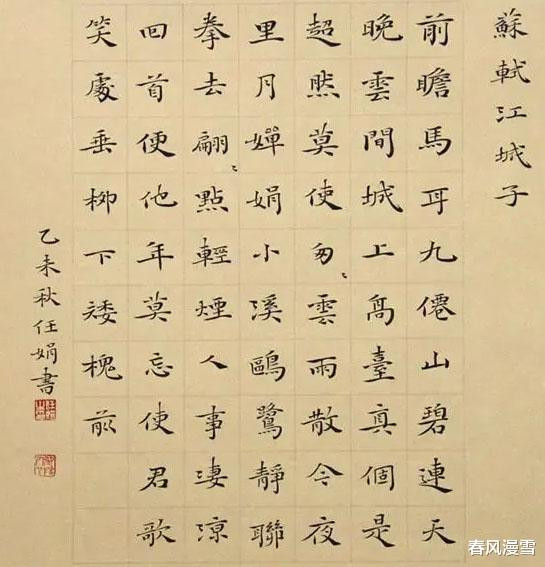 蘇軾江城子
前瞻馬耳九僊山碧連天
晚雲間城上高臺真個是
超然莫使匆〻雲雨散今夜
里月嬋娟小溪鷗鷺靜聯
拳去翩〻點輕煙人事淒涼
回首便他年莫忘使君歌
笑處垂柳下矮槐前
乙未秋任娟書
春风漫雪